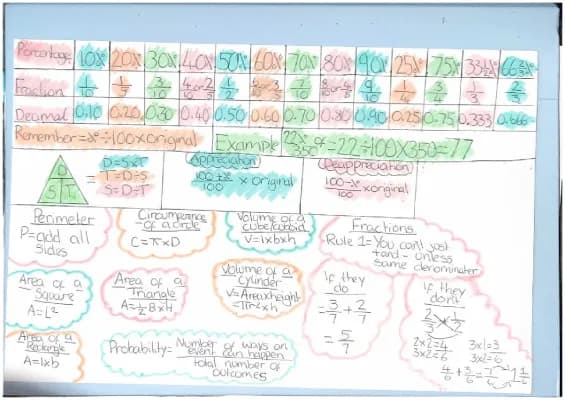 Percentage 10% 20% 30% 40% 50% 60% 70% 80% 90% 25% 75% 33⅓% 66⅔%
Fraction 1/10 1/5 3/10 4/10 2/5 1/2 6/10 3/5 7/10 8/10 4/5 9/10 1/4 3/4 1/3 2/3
Decimal 0.10 0.20 0.30 0.40 0.50 0.60 0.70 0.80 0.90 0.25 0.75 0.333 0.666
Remember = % ÷ 100 × original
Example 22% of 350 = 22 ÷ 100 × 350 = 77
D
S T
= D = S × T
T = D ÷ S
S = D ÷ T
Appreciation
100 + % / 100 × original
Depreciation
100 - % / 100 × original
Perimeter
P = add all
sides
Circumference
of a circle
C = π × D
Volume of a
cube/cuboid
V = l × b × h
Fractions
Rule 1 - You can't just
+ and - unless
same denominator
Area of a
Square
A = L²
Area of a
Triangle
A = ½ B × H
Volume of a
Cylinder
V = Area × height
= π r² × h
If they
do
= 3/7 + 2/7
= 5/7
If they
don't
2/3 × 1/2
2 × 2 = 4
3 × 2 = 6
3 × 1 = 3
3 × 2 = 6
4/6 + 3/6 = 7/6 = 1 1/6
Area of a
Rectangle
A = l × b
Probability = Number of ways an
event can happen
total number of
outcomes